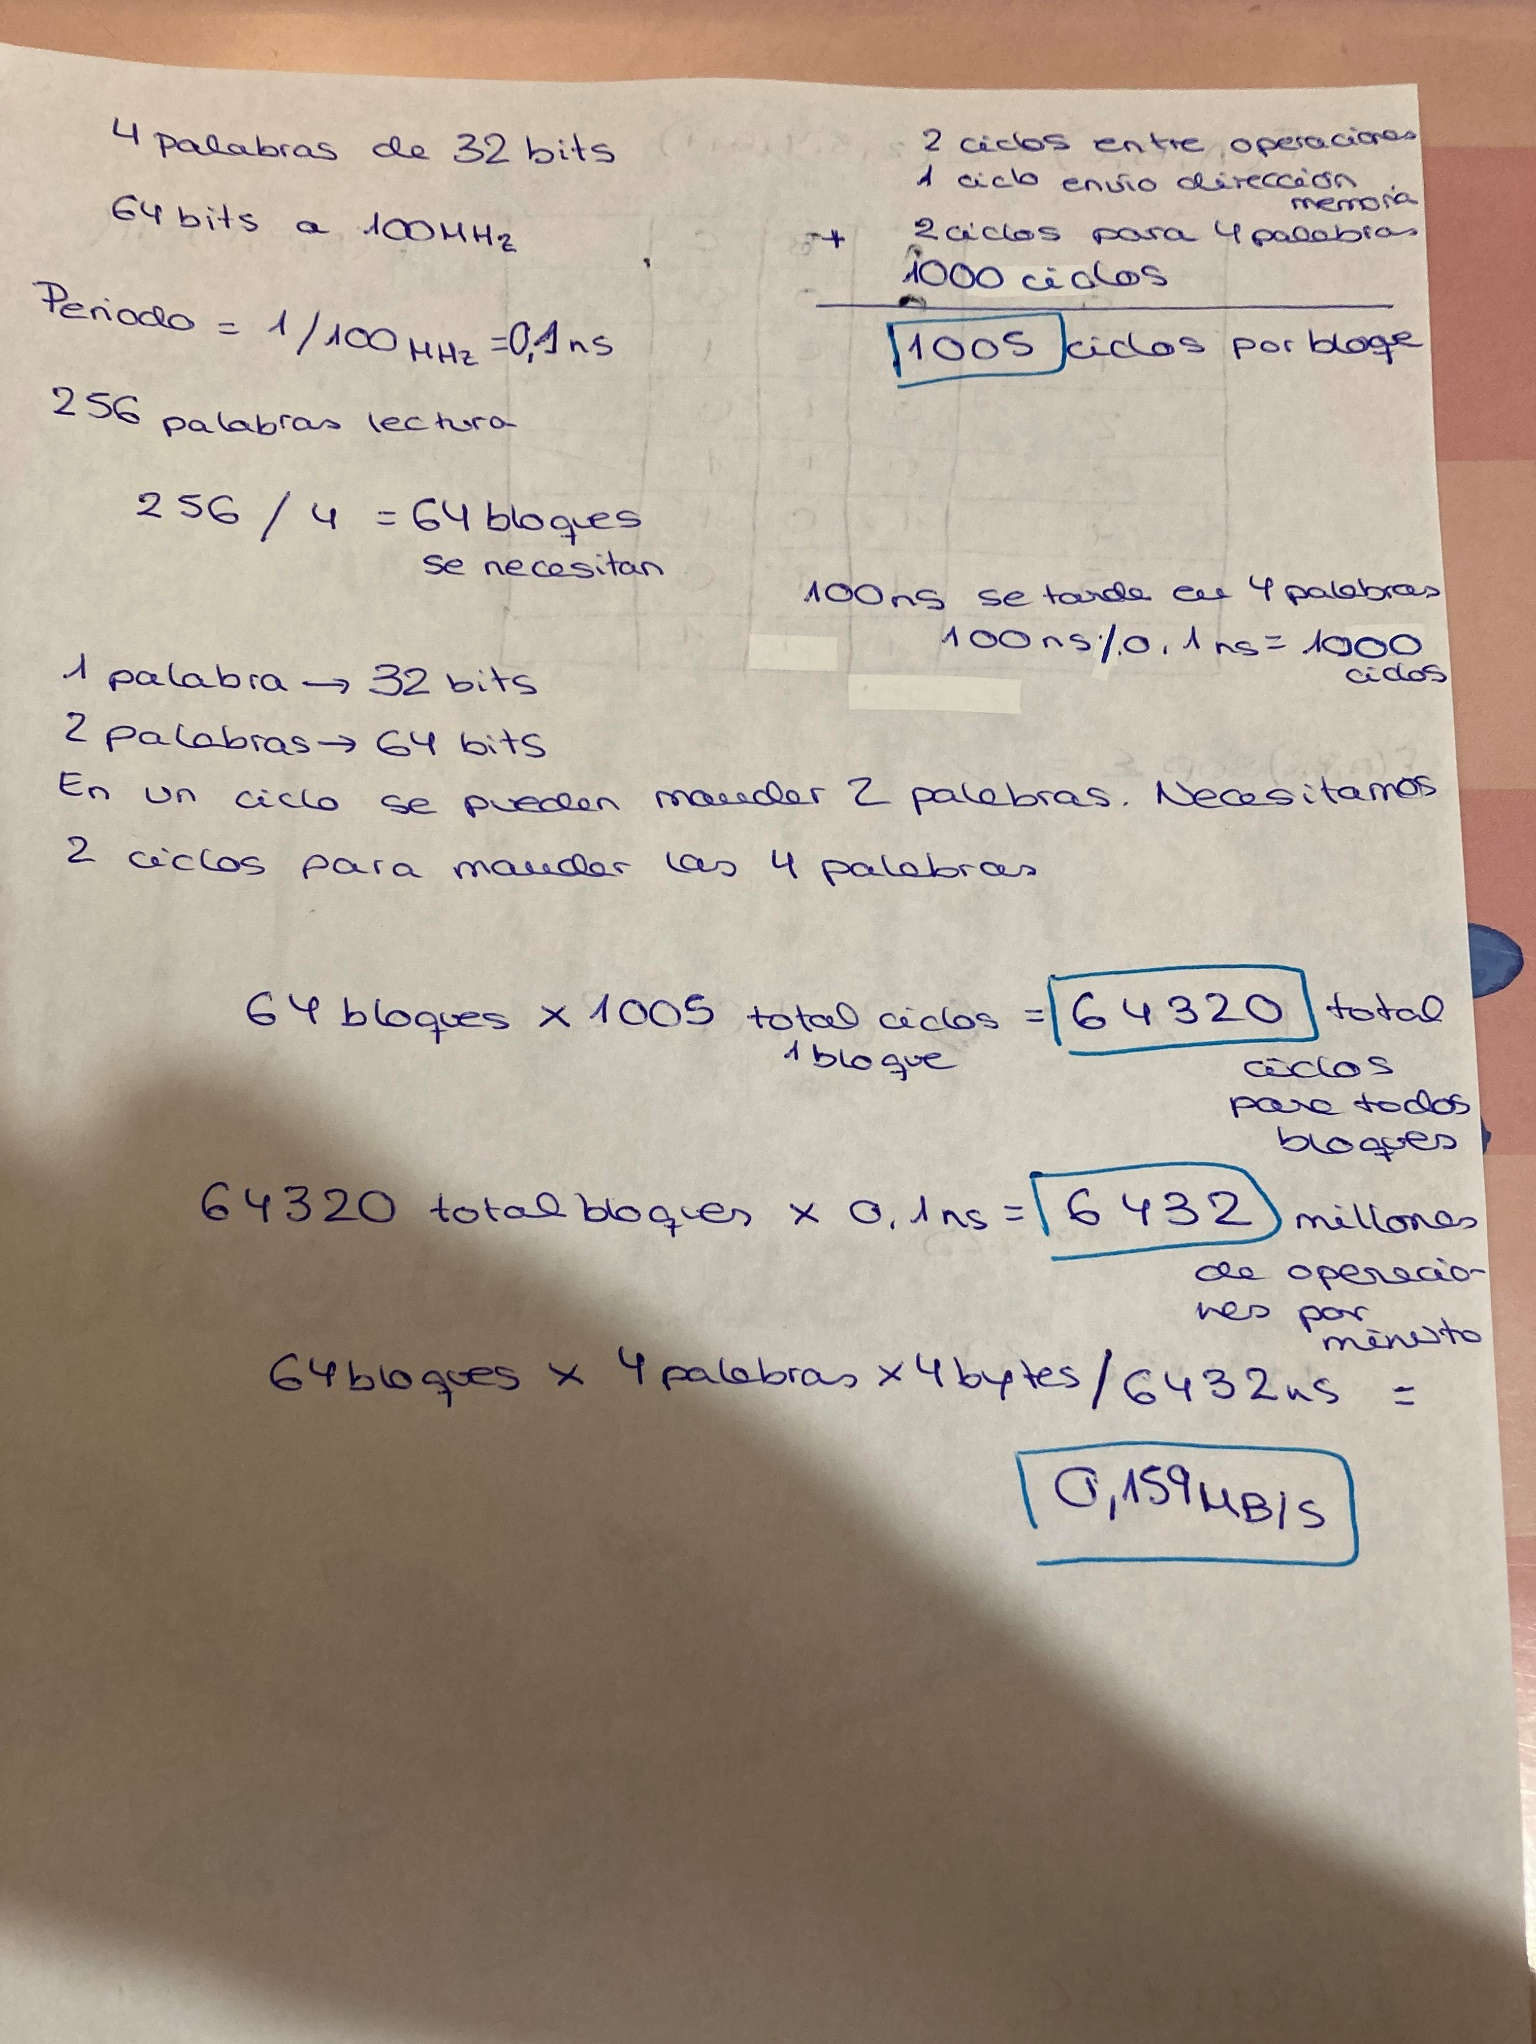 4 palabras de 32 bits
64 bits a 100MHz
Periodo = 1/100MHz = 0,1ns
256 palabras lectura
256 / 4 = 64 bloques
se necesitan
2 ciclos entre operaciones
1 ciclo envío dirección
memoria
+ 2 ciclos para 4 palabras
1000 ciclos
1005 ciclos por bloqe
100ns se tarda en 4 palabras
100ns/0,1ns = 1000
ciclos
1 palabra → 32 bits
2 palabras → 64 bits
En un ciclo se pueden mandar 2 palabras. Necesitamos
2 ciclos para mandar las 4 palabras
64 bloques x 1005 total ciclos = 64320 total
1 bloque
ciclos
para todos
bloques
64320 total bloques x 0,1ns = 6432 millones
de operacio-
nes por
minuto
64 bloques x 4 palabras x 4 bytes / 6432ns =
0,159MB/s